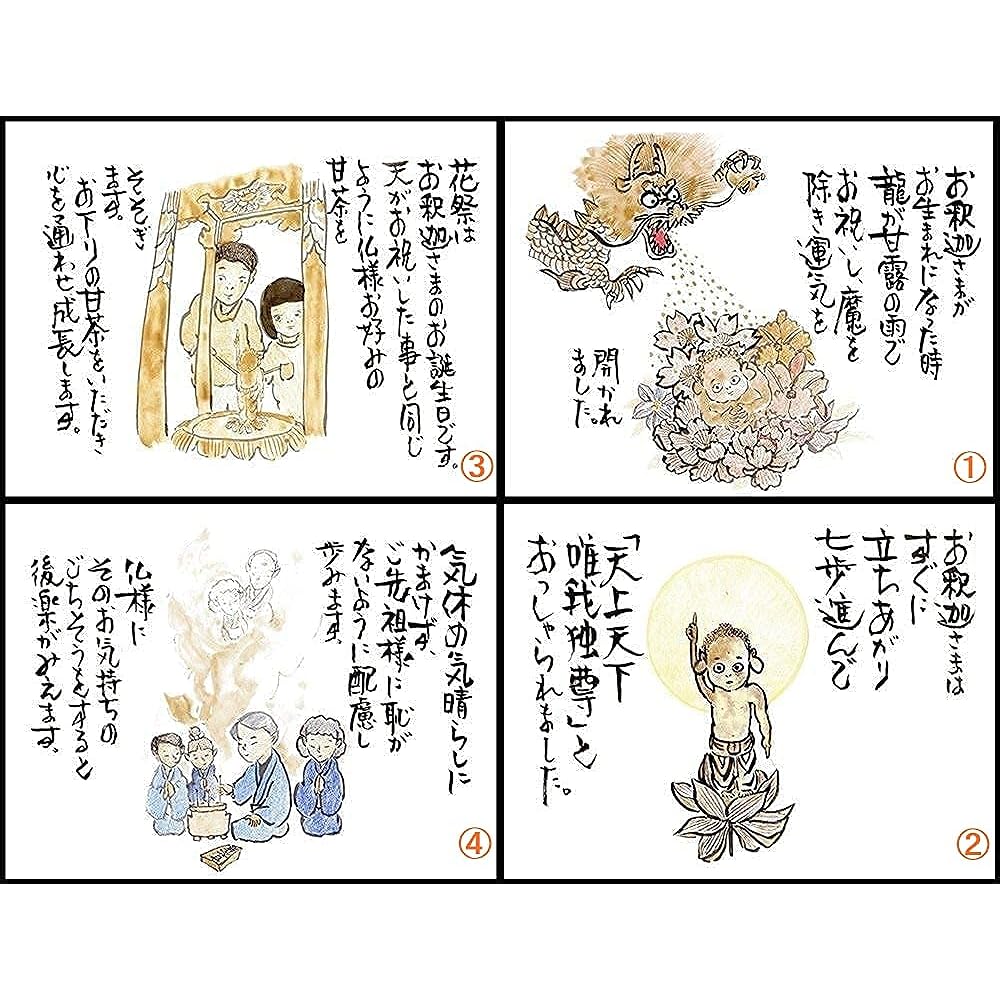 お釈迦さまが
お生まれになった時
龍が甘露の雨で
お祝いし、魔を
除き運気を
開かれ
ました。
①
お釈迦さまは
すぐに
立ちあがり
七歩進んで
「天上天下
唯我独尊」と
おっしゃられました。
②
花祭は
お釈迦さまのお誕生日です。
天がお祝いした事と同じ
ように仏様お好みの
甘茶を
そそぎ
ます。
お下りの甘茶をいただき
心を通わせ成長します。
③
気休め気晴らしに
かまけず、
ご先祖様に恥が
ないように配慮し
歩みます、
仏様に
そのお気持ちの
ごちそうをすると
後楽がみえます。
④